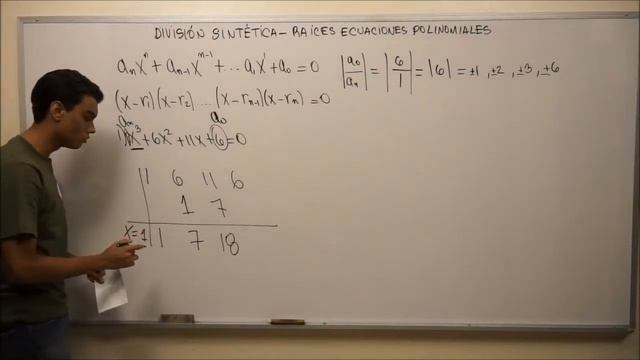 DIVISIÓN SINTÉTICA – RAÍCES ECUACIONES POLINOMIALES
aₙxⁿ + aₙ₋₁xⁿ⁻¹ + ... a₁x¹ + a₀ = 0
|a₀/aₙ| = |6/1| = |6| = ±1, ±2, ±3, ±6
(x-r₁)(x-r₂)....(x-rₙ₋₁)(x-rₙ) = 0
aₙ a₀
1x³ + 6x² + 11x + 6 = 0
1 6 11 6
1 7
x=1 1 7 18